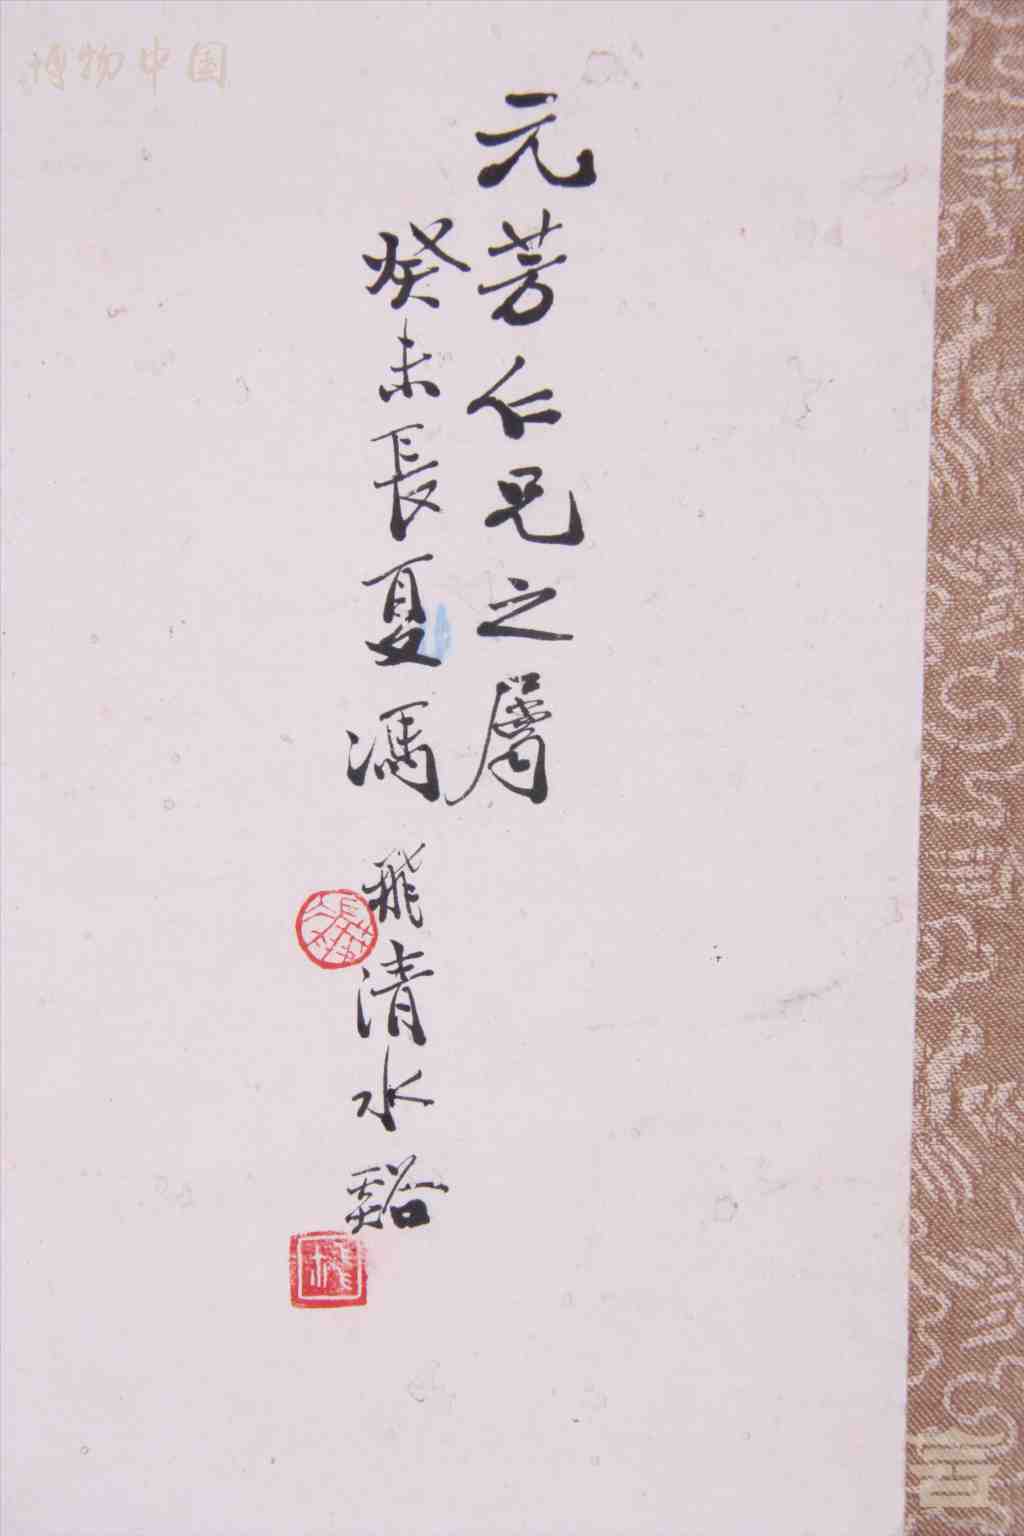 元芳仁兄之屬
癸未長夏馮飛清水谿
博物中国